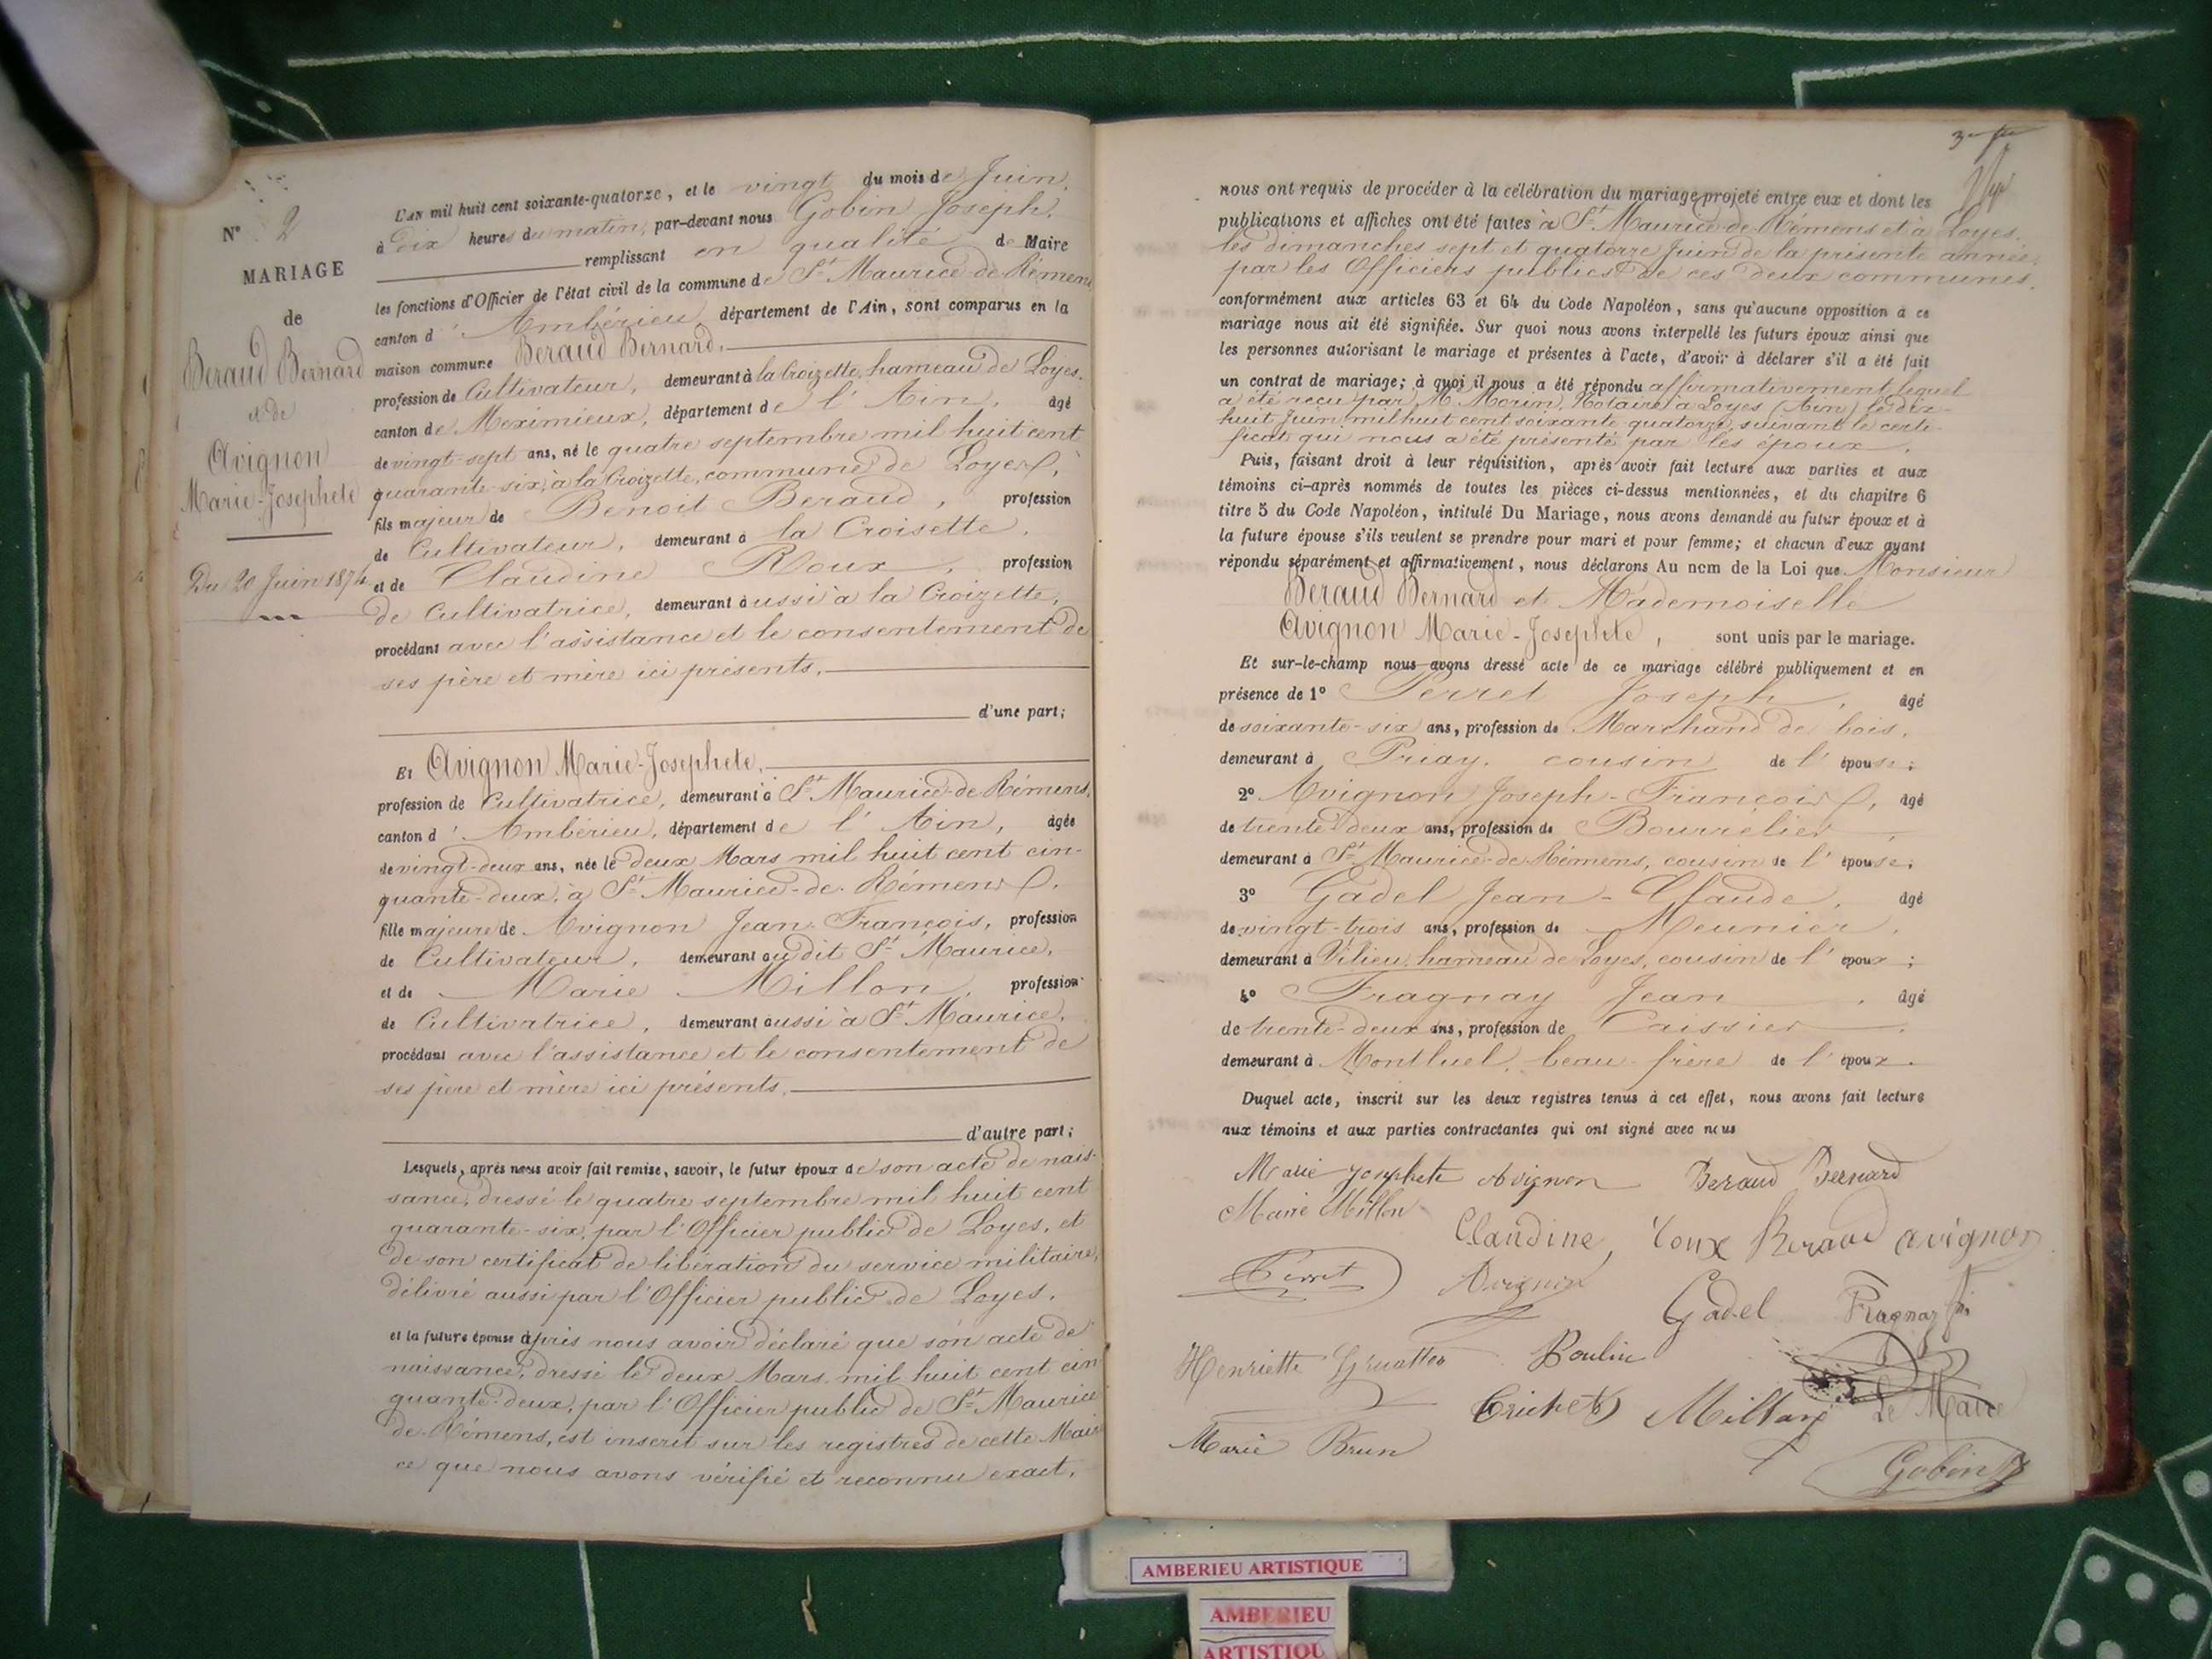 N° 2
MARIAGE
de
Beraud Bernard
et de
Avignon
Marie-Josephete
Du 20 Juin 1874
L'an mil huit cent soixante-quatorze, et le vingt du mois de Juin,
à Dix heures du matin, par-devant nous Gobin Joseph,
remplissant en qualité de Maire
les fonctions d'Officier de l'état civil de la commune de St Maurice de Rémens
canton d'Ambérieu, département de l'Ain, sont comparus en la
maison commune Beraud Bernard,
profession de Cultivateur, demeurant à la Croizette, hameau de Loyes,
canton de Meximieux, département de l'Ain, âgé
de vingt-sept ans, né le quatre septembre mil huit cent
quarante-six, à la Croizette, commune de Loyes,
fils majeur de Benoit Beraud, profession
de Cultivateur, demeurant à la Croisette,
et de Claudine Roux, profession
de Cultivatrice, demeurant aussi à la Croizette,
procédant avec l'assistance et le consentement de
ses père et mère ici présents,
d'une part;
Et Avignon Marie-Josephete,
profession de Cultivatrice, demeurant à St Maurice-de-Rémens,
canton d'Ambérieu, département de l'Ain, âgée
de vingt-deux ans, née le deux Mars mil huit cent cin-
quante-deux, à St Maurice-de-Rémens,
fille majeure de Avignon Jean-François, profession
de Cultivateur, demeurant audit St Maurice,
et de Marie Millon, profession
de Cultivatrice, demeurant aussi à St Maurice,
procédant avec l'assistance et le consentement de
ses père et mère ici présents,
d'autre part;
Lesquels, après nous avoir fait remise, savoir, le futur époux de son acte de nais-
sance, dressé le quatre septembre mil huit cent
quarante-six, par l'Officier public de Loyes, et
de son certificat de libération du service militaire,
délivré aussi par l'Officier public de Loyes,
et la future épouse après nous avoir déclaré que son acte de
naissance, dressé le deux Mars mil huit cent cin
quante-deux, par l'Officier public de St Maurice
de-Rémens, est inscrit sur les registres de cette Mair
ce que nous avons vérifié et reconnu exact,
nous ont requis de procéder à la célébration du mariage projeté entre eux et dont les
publications et affiches ont été faites à St Maurice-de-Rémens et à Loyes,
les dimanches sept et quatorze Juin de la présente année,
par les Officiers publics de ces deux communes,
conformément aux articles 63 et 64 du Code Napoléon, sans qu'aucune opposition à ce
mariage nous ait été signifiée. Sur quoi nous avons interpellé les futurs époux ainsi que
les personnes autorisant le mariage et présentes à l'acte, d'avoir à déclarer s'il a été fait
un contrat de mariage; à quoi il nous a été répondu affirmativement, lequel
a été reçu par M. Morin, Notaire à Loyes (Ain) le dix-
huit Juin, mil huit cent soixante-quatorze, suivant le certi-
ficat qui nous a été présenté par les époux,
Puis, faisant droit à leur réquisition, après avoir fait lecture aux parties et aux
témoins ci-après nommés de toutes les pièces ci-dessus mentionnées, et du chapitre 6
titre 5 du Code Napoléon, intitulé Du Mariage, nous avons demandé au futur époux et à
la future épouse s'ils veulent se prendre pour mari et pour femme; et chacun d'eux ayant
répondu séparément et affirmativement, nous déclarons Au nom de la Loi que Monsieur
Beraud Bernard et Mademoiselle
Avignon Marie-Josephete, sont unis par le mariage.
Et sur-le-champ nous avons dressé acte de ce mariage célébré publiquement et en
présence de 1° Perret Joseph, âgé
de soixante-six ans, profession de Marchand de bois,
demeurant à Priay, cousin de l'épouse;
2° Avignon Joseph-François, âgé
de trente-deux ans, profession de Bourrelier,
demeurant à St Maurice-de-Rémens, cousin de l'épouse;
3° Gadel Jean-Claude, âgé
de vingt-trois ans, profession de Meunier,
demeurant à Vilieu, hameau de Loyes, cousin de l'époux;
4° Fragnay Jean, âgé
de trente-deux ans, profession de Caissier,
demeurant à Montluel, beau-frère de l'époux.
Duquel acte, inscrit sur les deux registres tenus à cet effet, nous avons fait lecture
aux témoins et aux parties contractantes qui ont signé avec nous
Marie Josephete Avignon Beraud Bernard
Marie Millon
Claudine Roux Beraud avignon
Perret Avignon
Gadel Fragnay
Henriette Boulin
Millon Le Maire
Marie Brun
Gobin
AMBERIEU ARTISTIQUE
AMBERIEU
ARTISTIQU